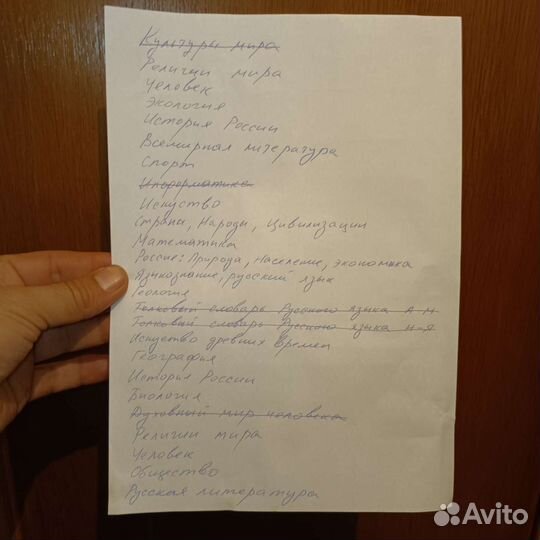 Культуры мира
Религии мира
Человек
Экология
История России
Всемирная литература
Спорт
Информатика
Искуство
Страны, Народы, Цивилизации
Математика
Россия: Природа, Население, экономика
Языкознание, русский язык
Геология
Толковый словарь Русского языка А-М
Толковый словарь Русского языка Н-Я
Искуство древних времен
География
История России
Биология
Духовный мир человека
Религии мира
Человек
Общество
Русская литература
Avito